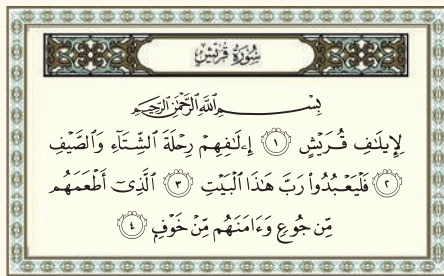 سُورَةُ قُرَيْشٍ
بِسْمِ اللَّهِ الرَّحْمَٰنِ الرَّحِيمِ
لِإِيلَٰفِ قُرَيْشٍ ١ إِۦلَٰفِهِمْ رِحْلَةَ ٱلشِّتَآءِ وَٱلصَّيْفِ
٢ فَلْيَعْبُدُوا۟ رَبَّ هَٰذَا ٱلْبَيْتِ ٣ ٱلَّذِىٓ أَطْعَمَهُم
مِّن جُوعٍ وَءَامَنَهُم مِّنْ خَوْفٍۭ ٤